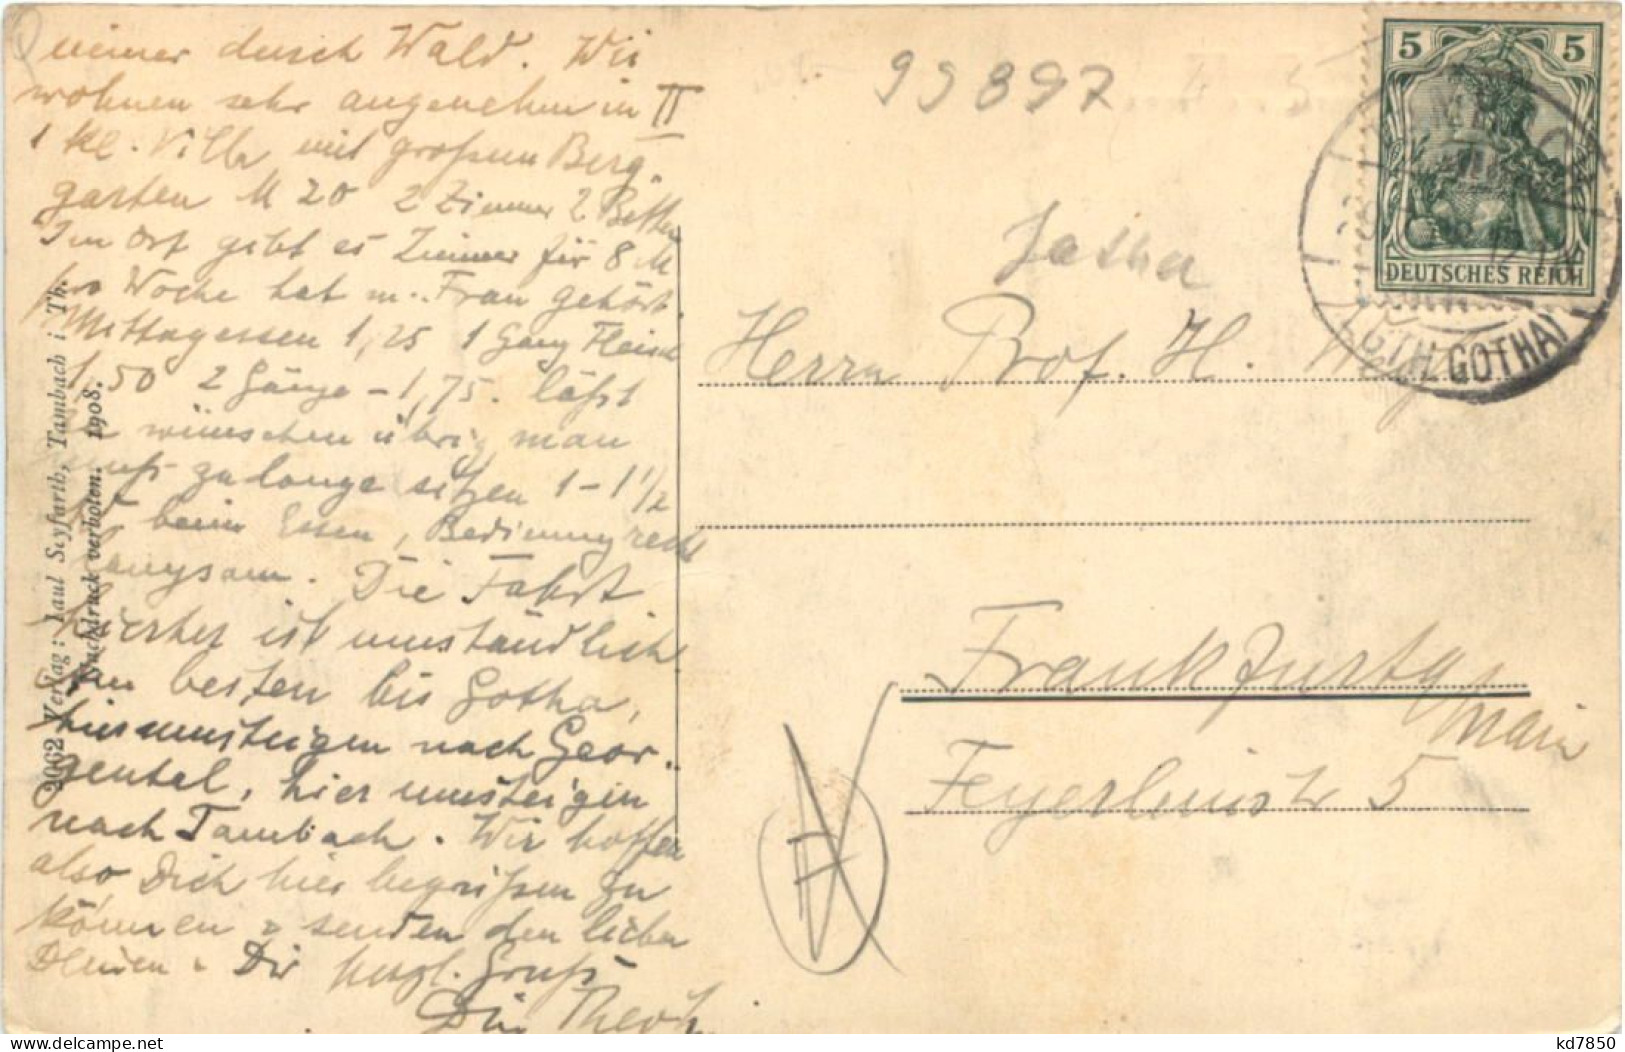 immer durch Wald. Wir
wohnen sehr angenehm in II
1 kl. Villa mit großem Berg-
garten M 20 2 Zimmer 2 Betten
Im Ort gibt es Zimmer für 8 M
pro Woche hat m. Frau gehört.
Mittagessen 1,25 1 Gang Fleisch
1,50 2 Gänge - 1,75. läßt
zu wünschen übrig, man
muß zu lange sitzen 1 - 1 1/2
beim Essen, Bedienung recht
langsam. Die Fahrt
hierher ist umständlich
Am besten bis Gotha,
hier umsteigen nach Geor-
gental, hier umsteigen
nach Tambach. Wir hoffen
also Dich hier begrüßen zu
können & senden den lieben
Deinen & Dir herzl. Gruß
Dein Theo
2062 Verlag: Paul Seyfarth, Tambach i. Th.
Nachdruck verboten. 1908.
99897
5 5
DEUTSCHES REICH
GOTHA)
Herrn Prof. H.
Frankfurt a/
Main
5
kd7850